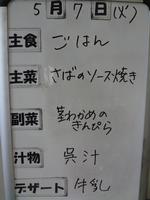 5月7日(火)
主食 ごはん
主菜 さばのソース焼き
副菜 茎わかめの
きんぴら
汁物 呉汁
デザート 牛乳